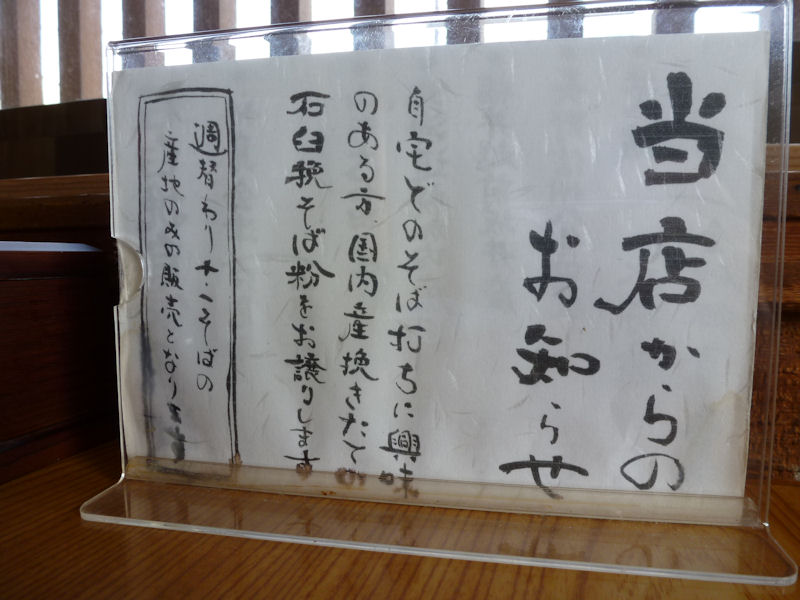 当店からの
お知らせ
自宅でのそば打ちに興味
のある方、国内産挽きたての
石臼挽そば粉をお譲りします
週替わり十一そばの
産地のみの販売となります